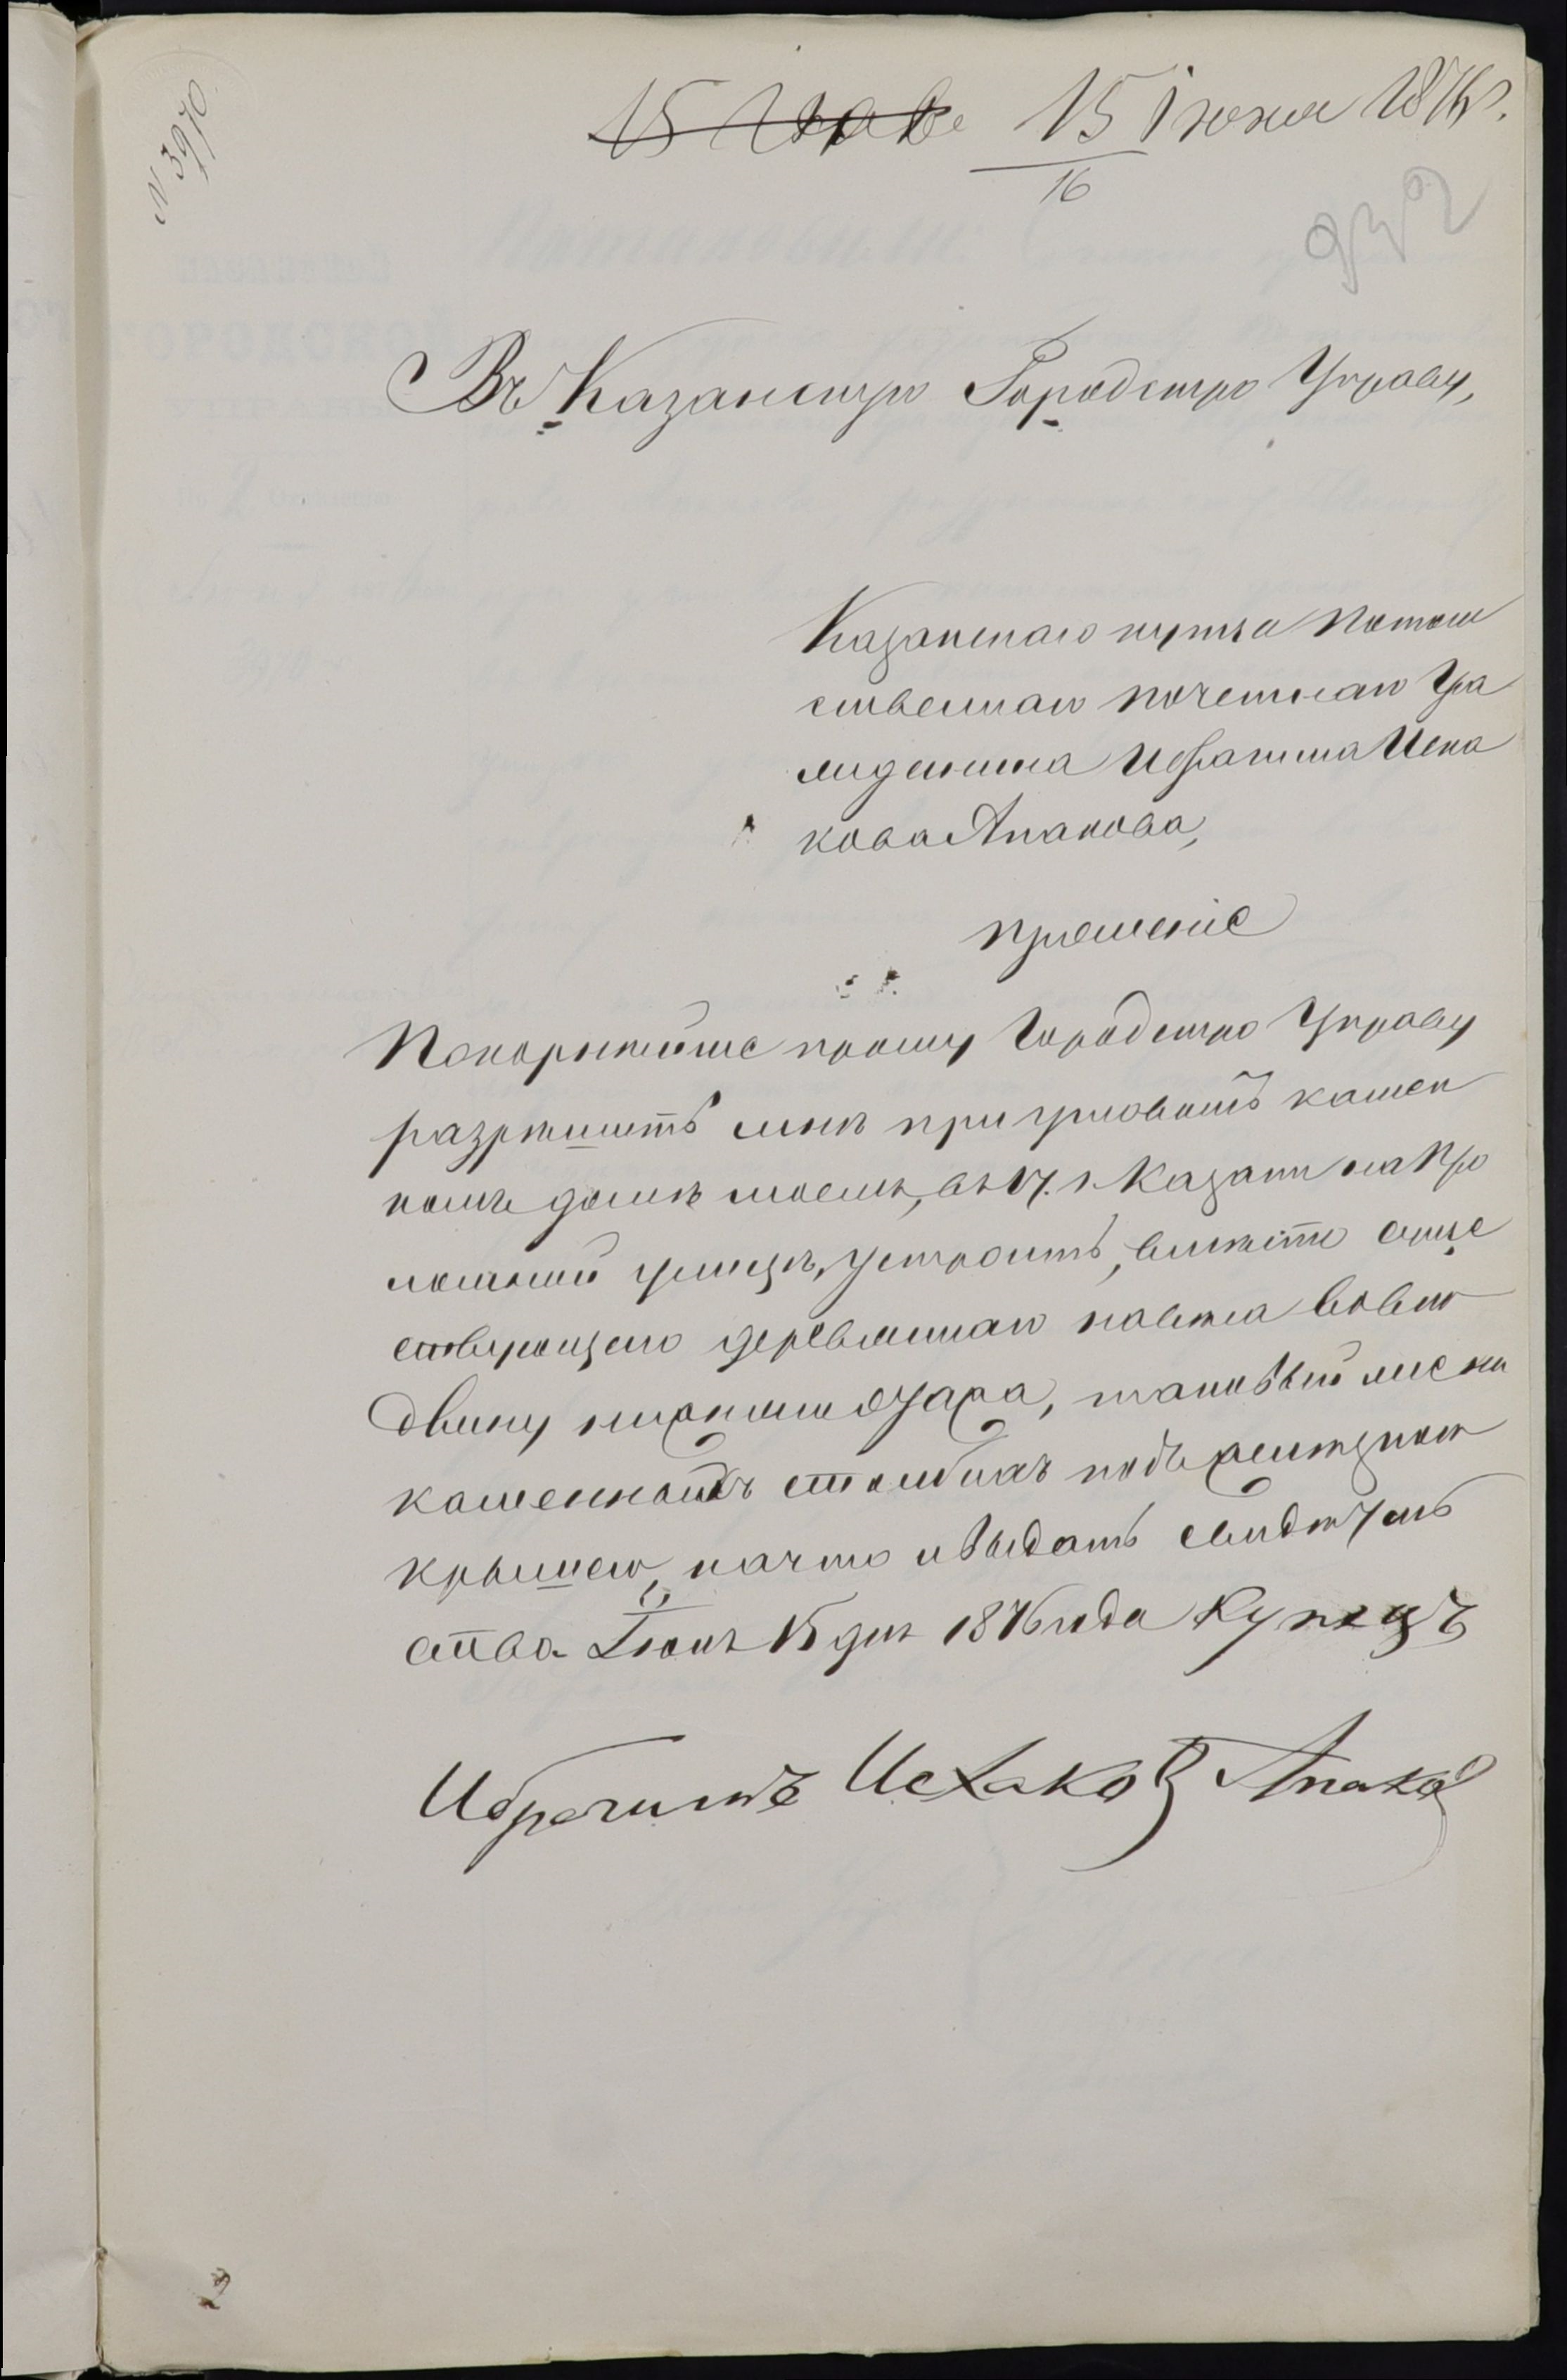 N 3970.
15 15 Іюня 1876 г.
16
932
Въ Казанскую Городскую Управу,
Казанскаго купца Потом
ственнаго почетнаго Гра
жданина Ибрагима Исха
кова Апакова,
прошеніе
Покорнѣйше прошу Городскую Управу
разрѣшить мнѣ при угловомъ камен
номъ домѣ моемъ, въ г. Казани на Про
ломной улицѣ, устроить, вмѣсто суще
ствующаго деревяннаго навѣса
таковый же на
каменныхъ столбахъ подъ желѣзною
крышею, на что и выдать свидѣтель
ство. Іюня 15 дня 1876 года Купецъ
Ибрагимъ Исхаковъ Апаков